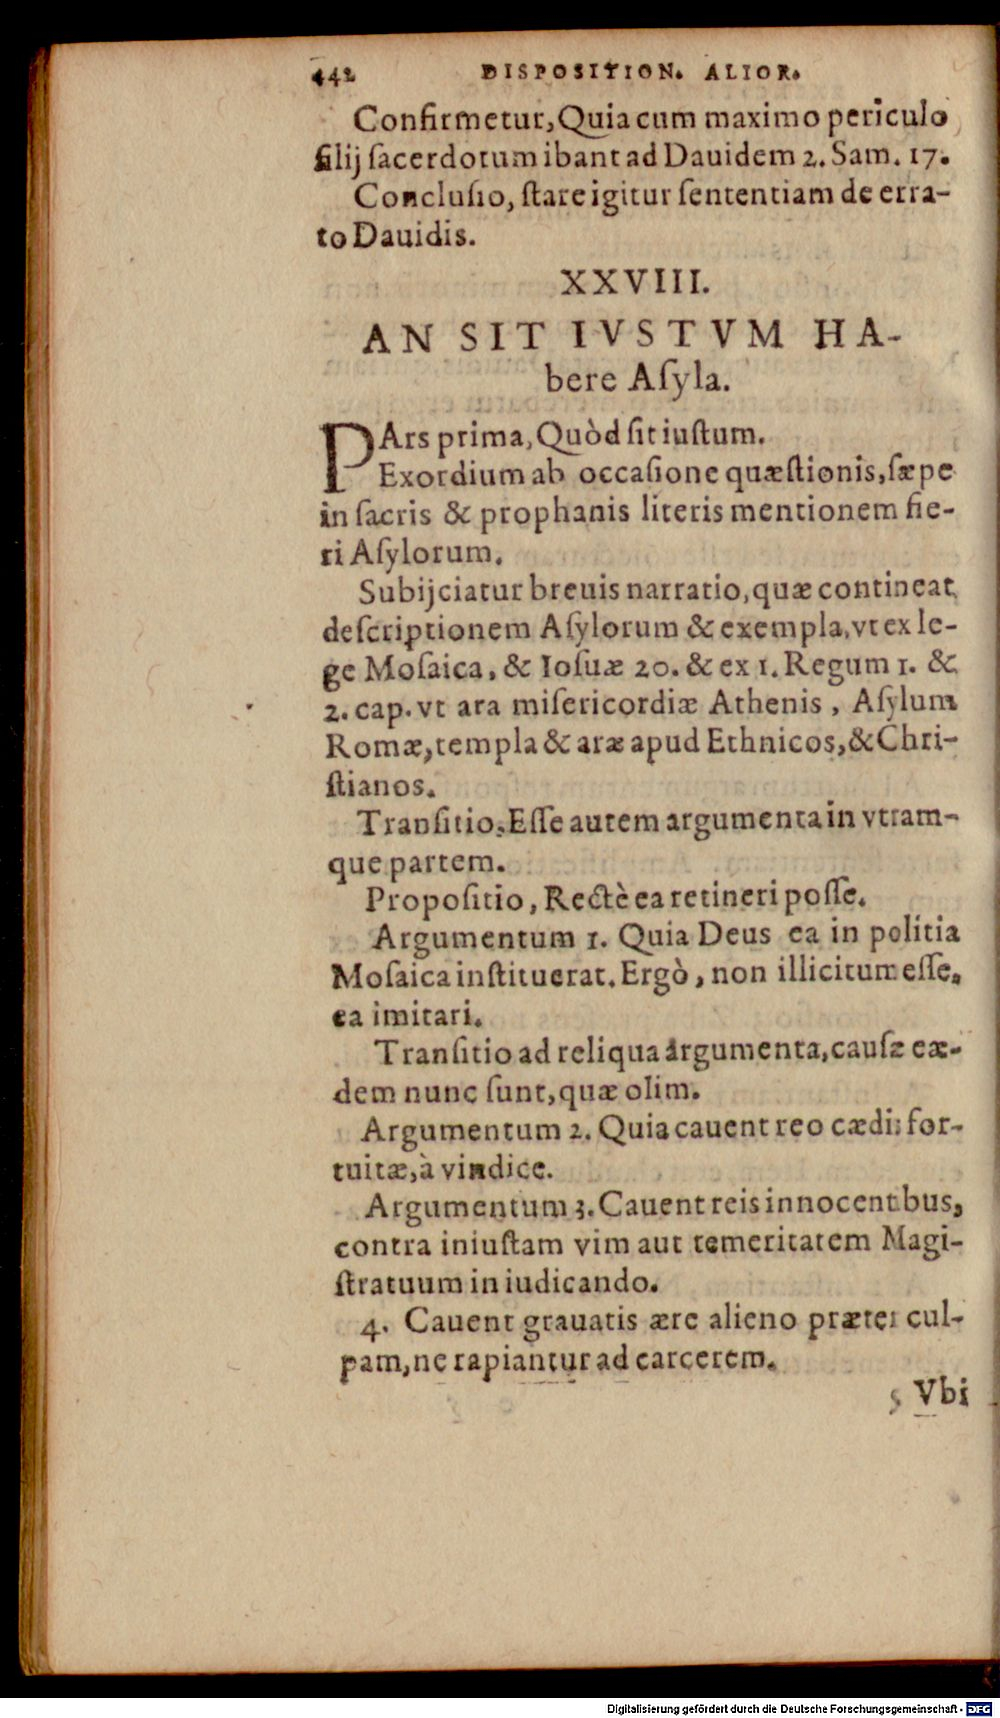 442 DISPOSITION. ALIOR.
Confirmetur, Quia cum maximo periculo
filij ſacerdotum ibant ad Dauidem 2. Sam. 17.
Concluſio, ſtare igitur ſententiam de erra-
to Dauidis.
XXVIII.
AN SIT IVSTVM HA-
bere Aſyla.
PArs prima, Quòd ſit iuſtum.
Exordium ab occaſione quæſtionis, ſæpe
in ſacris & prophanis literis mentionem fie-
ri Aſylorum.
Subijciatur breuis narratio, quæ contineat
deſcriptionem Aſylorum & exempla, vt ex le-
ge Moſaica, & Ioſuæ 20. & ex 1. Regum 1. &
2. cap. vt ara miſericordiæ Athenis, Aſylum
Romæ, templa & aræ apud Ethnicos, & Chri-
ſtianos.
Tranſitio, Eſſe autem argumenta in vtram-
que partem.
Propoſitio, Rectè ea retineri poſſe.
Argumentum 1. Quia Deus ea in politia
Moſaica inſtituerat. Ergò, non illicitum eſſe,
ea imitari.
Tranſitio ad reliqua argumenta, cauſæ eæ-
dem nunc ſunt, quæ olim.
Argumentum 2. Quia cauent reo cædis for-
tuitæ, à vindice.
Argumentum 3. Cauent reis innocentibus,
contra iniuſtam vim aut temeritatem Magi-
ſtratuum in iudicando.
4. Cauent grauatis ære alieno præter cul-
pam, ne rapiantur ad carcerem.
5 Vbi
Digitalisierung gefördert durch die Deutsche Forschungsgemeinschaft - DFG